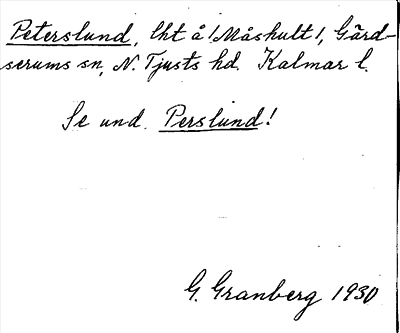 Peterslund, lht å /Måshult/, Gärd-
serums sn, N. Tjusts hd. Kalmar l.
Se und. Perslund!
G. Granberg 1930